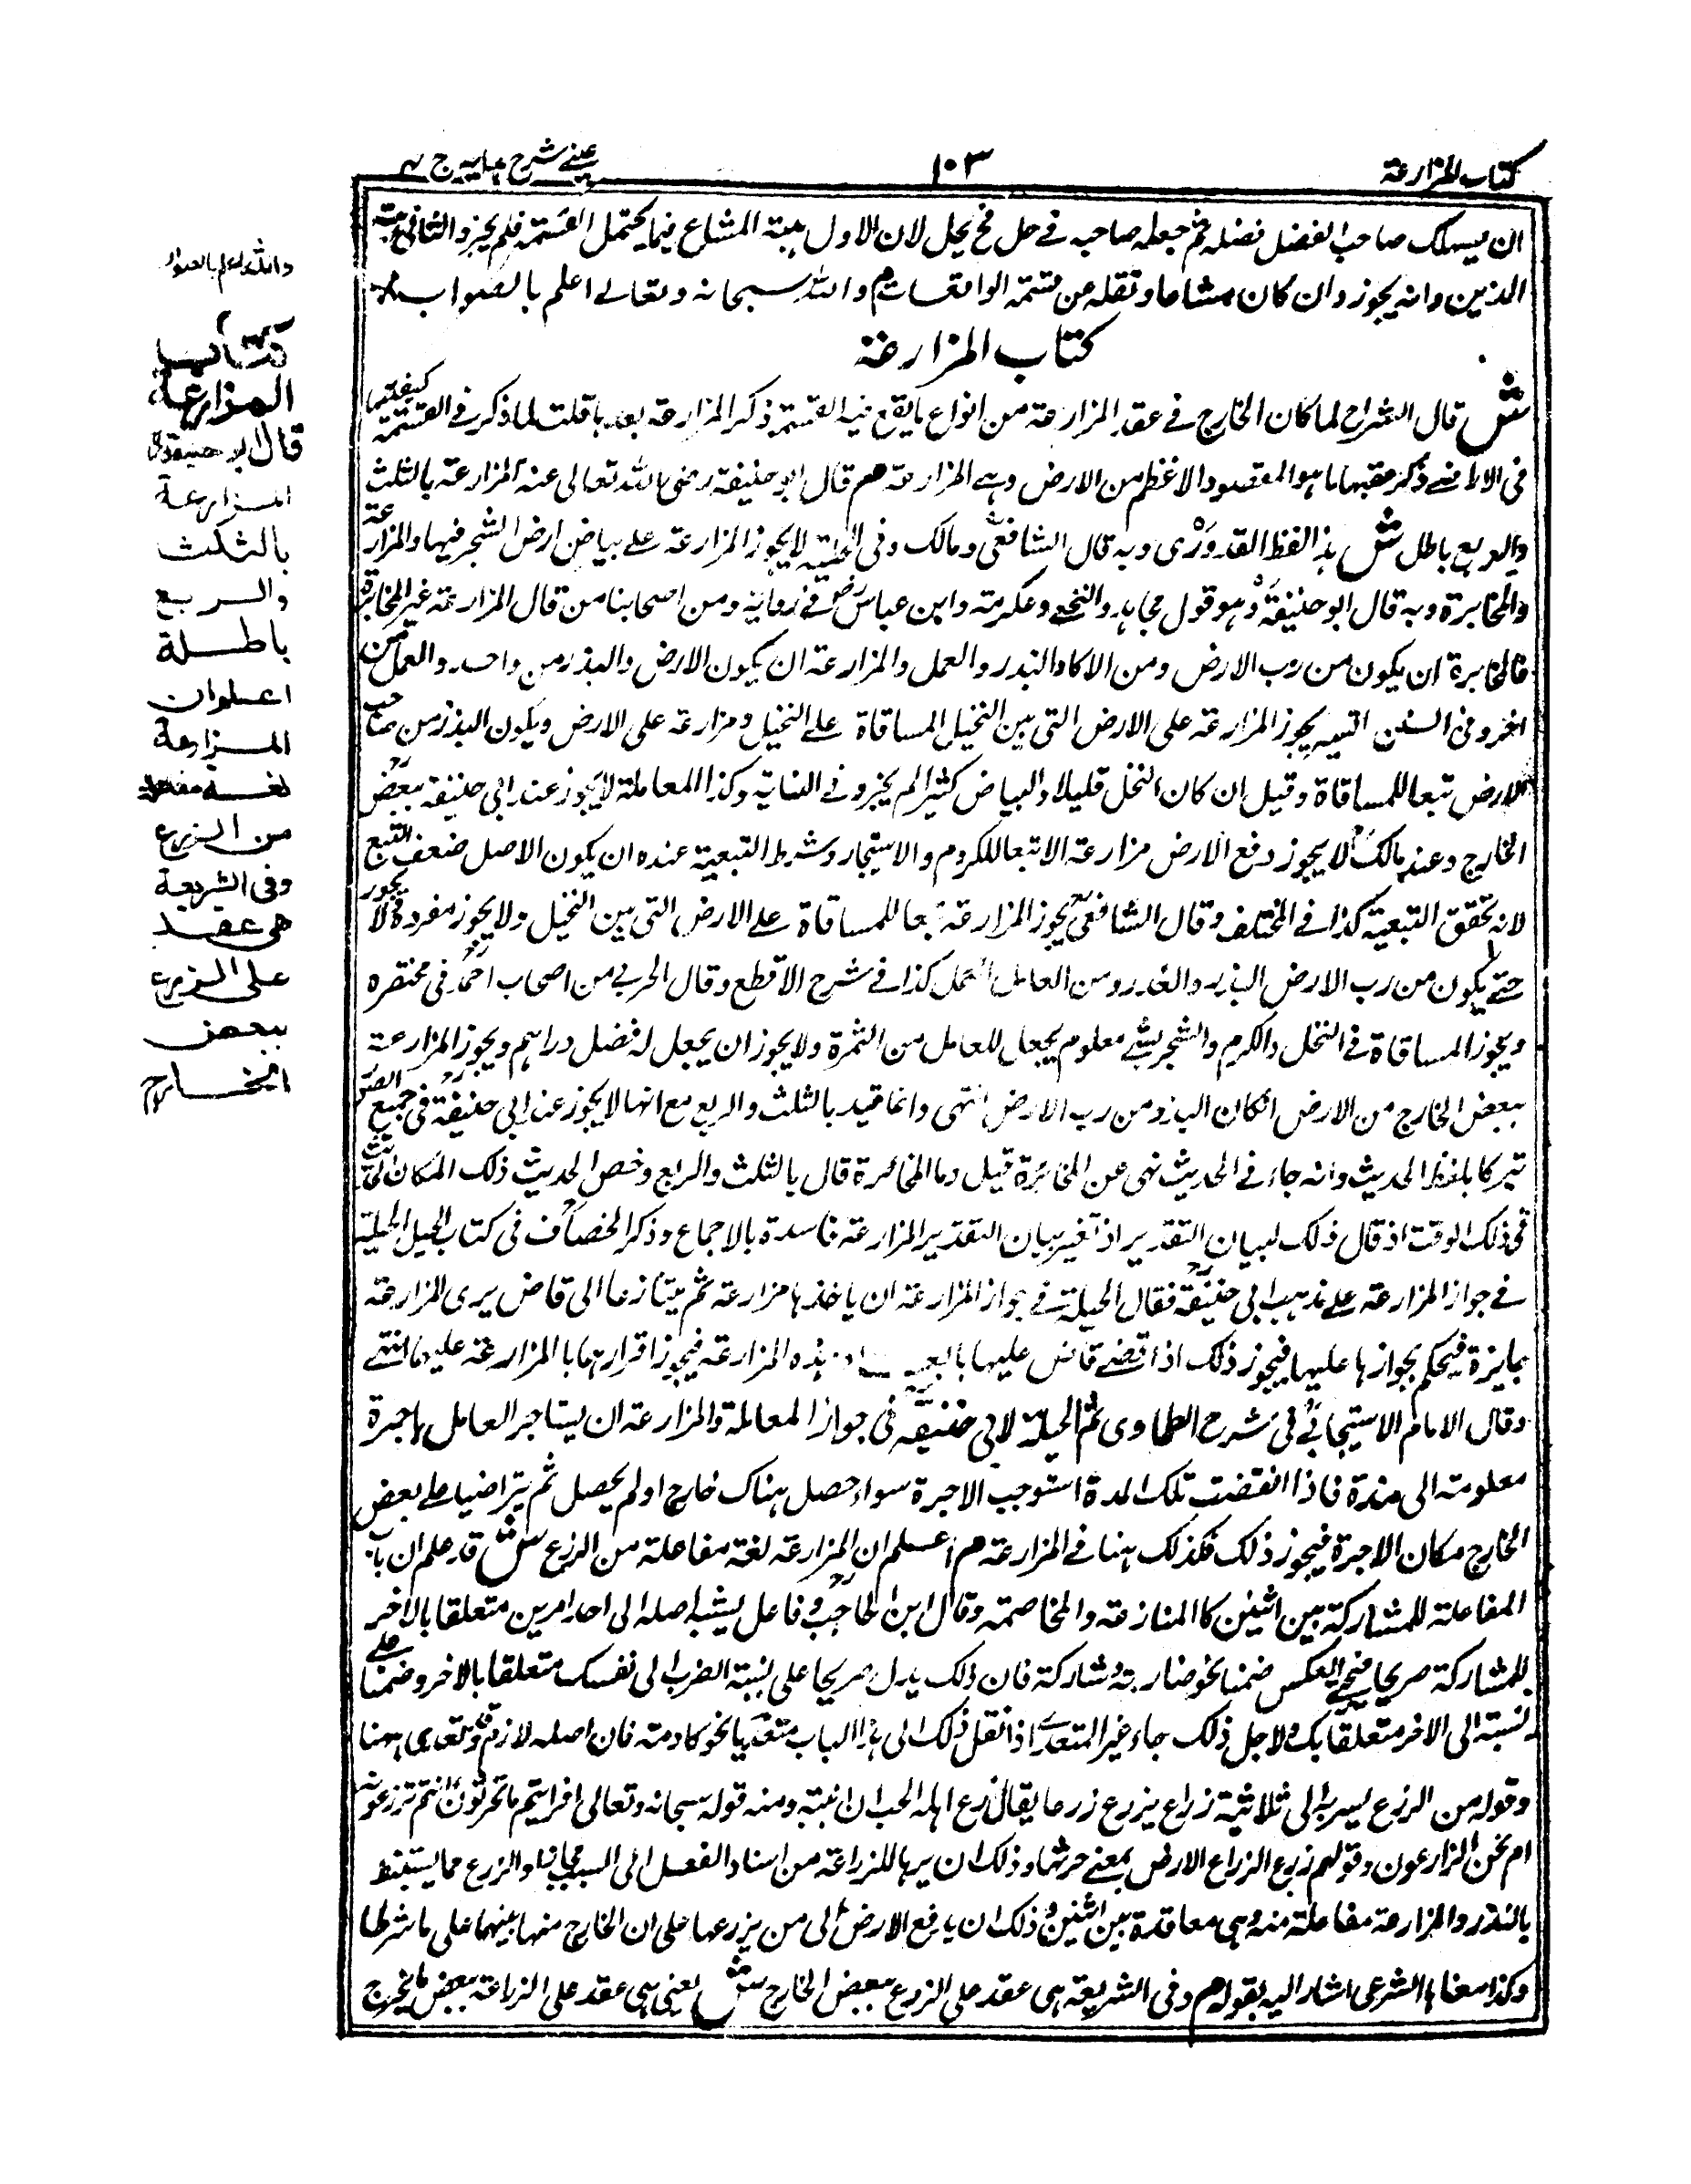 كتاب المزارعة
١٠٣
عيني شرح هدايه ج ٤
ان يسلك صاحب الفضل فضله ثم جعله صاحبه في حل فح يحل لان الاول هبة المشاع فيما يحتمل القسمة فلم يجز والثاني هبة
الدين وانه يجوز وان كان مشاعا ونقله عن تتمة الواقعات م والله سبحانه وتعالى اعلم بالصواب
كتاب المزارعة
ش قال الشراح لما كان الخارج في عقد المزارعة من انواع ما يقع فيه القسمة ذكر المزارعة بعدها قلت لما ذكر في القسمة كيفيتها
في الاراضي ذكر عقبها ما هو المقصود الاعظم من الارض وهي المزارعة م قال ابو حنيفة رضي الله تعالى عنه المزارعة بالثلث
والربع باطل ش هذا لفظ القدوري وبه قال الشافعي ومالك وفي الحلية لا يجوز المزارعة على بياض ارض الشجر فيها والمزارعة
والمخابرة وبه قال ابو حنيفة وهو قول مجاهد والنخعي وعكرمة وابن عباس رض في رواية ومن اصحابنا من قال المزارعة غير المخابرة
فالمخابرة ان يكون من رب الارض ومن الاكار البذر والعمل والمزارعة ان يكون الارض والبذر من واحد والعمل من
اخر وفي السنن يجوز المزارعة على الارض التي بين النخيل المساقاة على النخيل ومزارعة على الارض ويكون البذر من صاحب
الارض تبعا للمساقاة وقيل ان كان النخل قليلا والبياض كثيرا لم يجز وفي الغاية وكذا المعاملة لا يجوز عند ابي حنيفة ببعض
الخارج وعند مالك لا يجوز دفع الارض مزارعة الا تبعا للكروم والاستيجار وشرط التبعية عنده ان يكون الاصل ضعف التبع
لانه تحقق التبعية كذا في المختلف وقال الشافعي يجوز المزارعة تبعا للمساقاة على الارض التي بين النخيل ولا يجوز مفردة ولا يجوز
حتى يكون من رب الارض البذر والغدر ومن العامل العمل كذا في شرح الاقطع وقال الحربي من اصحاب احمد في مختصره
ويجوز المساقاة في النخل والكرم والشجر بشئ معلوم يجعل للعامل من الثمرة ولا يجوز ان يجعل له فضل دراهم ويجوز المزارعة
ببعض الخارج من الارض اذا كان البذر من رب الارض انتهى وانما قيد بالثلث والربع مع انها لا يجوز عند ابي حنيفة في جميع الصور
تبركا بلفظ الحديث وانه جاء في الحديث نهى عن المخابرة قيل وما المخابرة قال بالثلث والربع وخص الحديث ذلك المكان
في ذلك الوقت اذ قال ذلك لبيان التقدير اذ بغير بيان التقدير المزارعة فاسدة بالاجماع وذكر الخصاف في كتاب الحيل الحيلة
في جواز المزارعة على مذهب ابي حنيفة فقال الحيلة في جواز المزارعة ان ياخذها مزارعة ثم يتنازعا الى قاض يرى المزارعة
جايزة فيحكم بجوازها عليهما فيجوز ذلك اذا قضى قاض عليهما هذه المزارعة فيجوز اقرارهما بالمزارعة عليهما انتهى
وقال الامام الاسبيجابي في شرح الطحاوي ثم الحيلة لابي حنيفة في جواز المعاملة والمزارعة ان يستاجر العامل باجرة
معلومة الى مدة فاذا انقضت تلك المدة استوجب الاجرة سواء حصل هناك خارج او لم يحصل ثم يتراضيا على بعض
الخارج مكان الاجرة فيجوز ذلك فكذلك هنا في المزارعة م اعلم ان المزارعة لغة مفاعلة من الزرع ش قد علم ان باب
المفاعلة للمشاركة بين اثنين كالمنازعة والمخاصمة وقال ابن الحاجب وفاعل لينسب اصله الى احد امرين متعلقا بالاخر
للمشاركة صريحا فيجئ العكس ضمنا نحو ضاربته وشاركته فان ذلك يدل صريحا على نسبة الضرب الى نفسك متعلقا بالاخر وضمنا على
نسبته الى الاخر متعلقا بك ولاجل ذلك جاء غير المتعدي اذا نقل ذلك الى هذا الباب متعديا نحو كارمته فان اصله لازم وتعدى ههنا
وقوله من الزرع يسير به الى ثلاثية زرع يزرع زرعا يقال زرع الله الحب اي انبته ومنه قوله سبحانه وتعالى افرايتم ما تحرثون أانتم تزرعونه
ام نحن الزارعون وقولهم زرع الزراع الارض بمعنى حرثها وذلك ان يربها للزراعة من اسناد الفعل الى السبب مجازا والزرع مما يستنبط
بالبذر والمزارعة مفاعلة منه وهي معاقدة بين اثنين وذلك ان يدفع الارض الى من يزرعها على ان الخارج منها بينهما على ما شرطا
وكذا معناها الشرعي اشار اليه بقوله م وفي الشريعة هي عقد على الزرع ببعض الخارج ش يعني هي عقد على الزراعة ببعض ما يخرج
والله اعلم بالصواب
كتاب
المزارعة
قال ابو حنيفة رح
المزارعة
بالثلث
والربع
باطلة
اعلم ان
المزارعة
لغة مفاعلة
من الزرع
وفي الشريعة
هي عقد
على الزرع
ببعض
الخارج